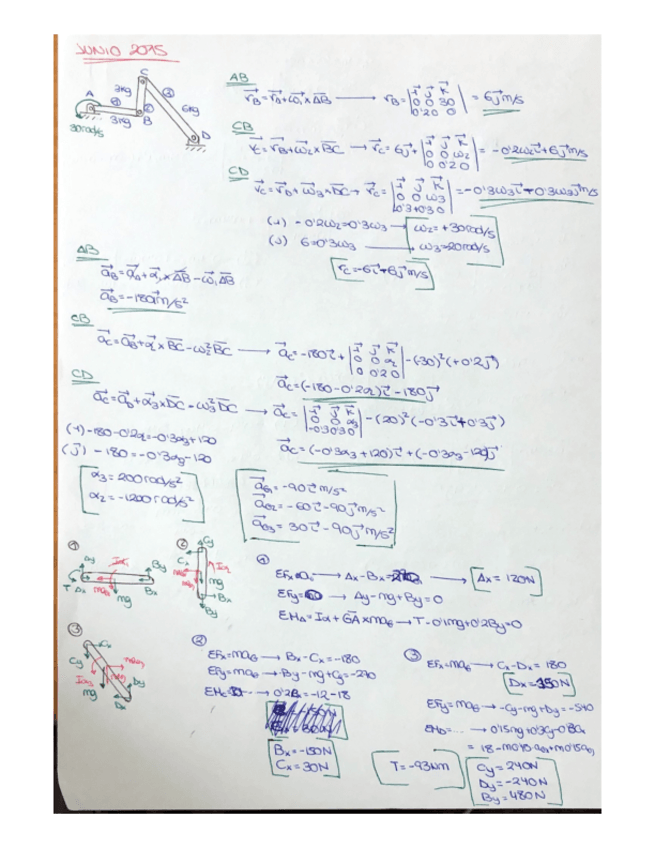 JUNIO 2015
A
C
3kg
②
③
6kg
①
3kg
B
D
30rad/s
AB
v⃗B = v⃗A + ω⃗1 × AB → vB = |i⃗ j⃗ k⃗; 0 0 30; 0'2 0 0| = 6j⃗ m/s
CB
v⃗C = v⃗B + ω⃗2 × BC → v⃗C = 6j⃗ + |i⃗ j⃗ k⃗; 0 0 ω2; 0 0'2 0| = -0'2ω2i⃗ + 6j⃗ m/s
CD
v⃗C = v⃗D + ω⃗3 × DC → v⃗C = |i⃗ j⃗ k⃗; 0 0 ω3; -0'3 +0'3 0| = -0'3ω3i⃗ + 0'3ω3j⃗ m/s
(i) -0'2ω2 = 0'3ω3 → ω2 = +30rad/s
(j) 6 = 0'3ω3 → ω3 = 20rad/s
v⃗C = -6i⃗ + 6j⃗ m/s
AB
a⃗B = a⃗A + α⃗1 × AB - ω1²AB
a⃗B = -180i⃗ m/s²
CB
a⃗C = a⃗B + α⃗ × BC - ω2²BC → a⃗C = -180i⃗ + |i⃗ j⃗ k⃗; 0 0 α2; 0 0'2 0| - (30)²(+0'2j⃗)
a⃗C = (-180 - 0'2α2)i⃗ - 180j⃗
CD
a⃗C = a⃗D + α⃗3 × DC - ω3²DC → a⃗C = |i⃗ j⃗ k⃗; 0 0 α3; -0'3 0'3 0| - (20)²(-0'3i⃗ + 0'3j⃗)
(i) -180 - 0'2α2 = -0'3α3 + 120
a⃗C = (-0'3α3 + 120)i⃗ + (-0'3α3 - 120)j⃗
(j) -180 = -0'3α3 - 120
α3 = 200rad/s²
α2 = -1200rad/s²
a⃗G1 = -90i⃗ m/s²
a⃗G2 = -60i⃗ - 90j⃗ m/s²
a⃗G3 = 30i⃗ - 90j⃗ m/s²
①
Ay
By
T
Ax
mg
Bx
②
Cy
Cx
mg
Bx
By
①
ΣFx = → Ax - Bx = → Ax = 120N
ΣFy = → Ay - mg + By = 0
ΣMA = Iα + GA × maG → T - 0'1mg + 0'2By = 0
③
Cx
Cy
mg
Dy
Dx
②
ΣFx = maG → Bx - Cx = -180
ΣFy = maG → -By - mg + Cy = -270
ΣMC = ... → 0'2Bx = -12 - 18
Bx = -150N
Cx = 30N
③
ΣFx = maG → Cx - Dx = 180
Dx = 150N
ΣFy = maG → -Cy - mg + Dy = -540
ΣMD = ... → 0'15mg + 0'3Cy - 0'3Cx
T = -93Nm
Cy = 240N
Dy = -240N
By = 480N